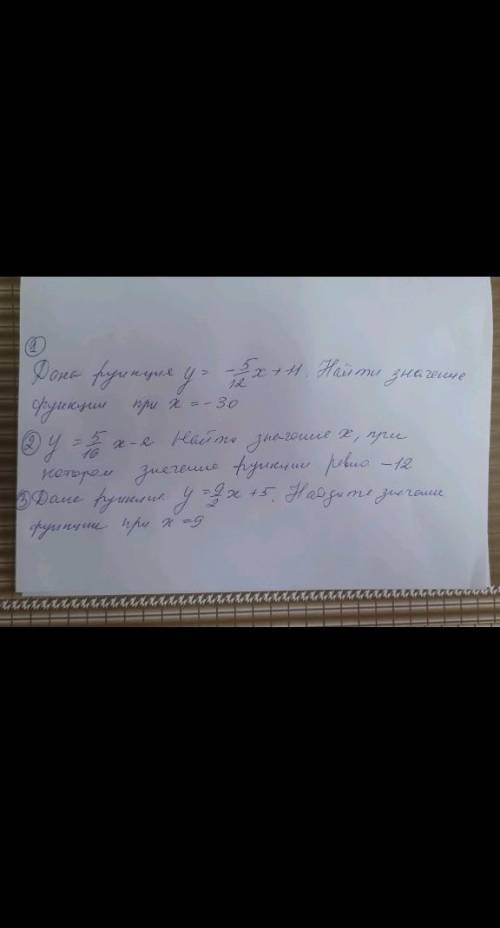 ①
Дана функция y = -5/12 x + 11. Найти значение
функции при x = -30
② y = 5/16 x - 2 Найти значение x, при
котором значение функции равно -12
③ Дана функция y = 9/2 x + 5. Найдите значение
функции при x = 9